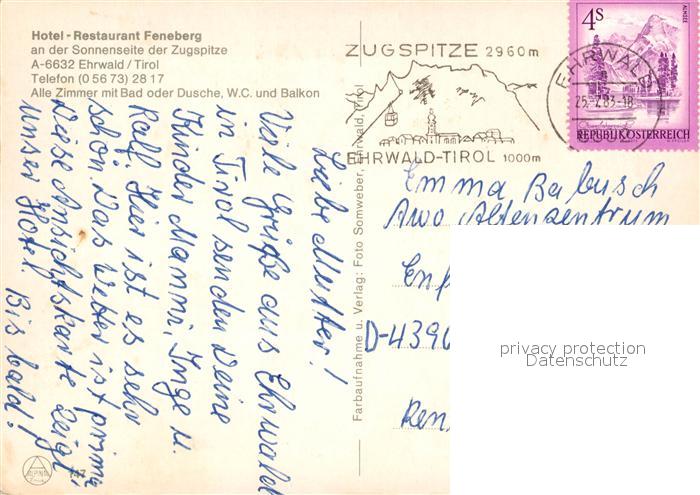 Hotel - Restaurant Feneberg
an der Sonnenseite der Zugspitze
A-6632 Ehrwald / Tirol
Telefon (0 56 73) 28 17
Alle Zimmer mit Bad oder Dusche, W.C. und Balkon
Liebe Mutter!
Viele Grüße aus Ehrwald
in Tirol senden Deine
Kinder Manni, Inge u.
Ralf. Hier ist es sehr
schön. Das Wetter ist prima
Diese Ansichtskarte zeigt
unser Hotel. Bis bald!
147
Farbaufnahme u. Verlag: Foto Somweber, Ehrwald, Tirol
ZUGSPITZE 2960m
EHRWALD-TIROL 1000m
EHRWALD
4S
ALMSEE
REPUBLIK ÖSTERREICH
Emma Babusch
Awo Altenzentrum
D-4390
privacy protection
Datenschutz